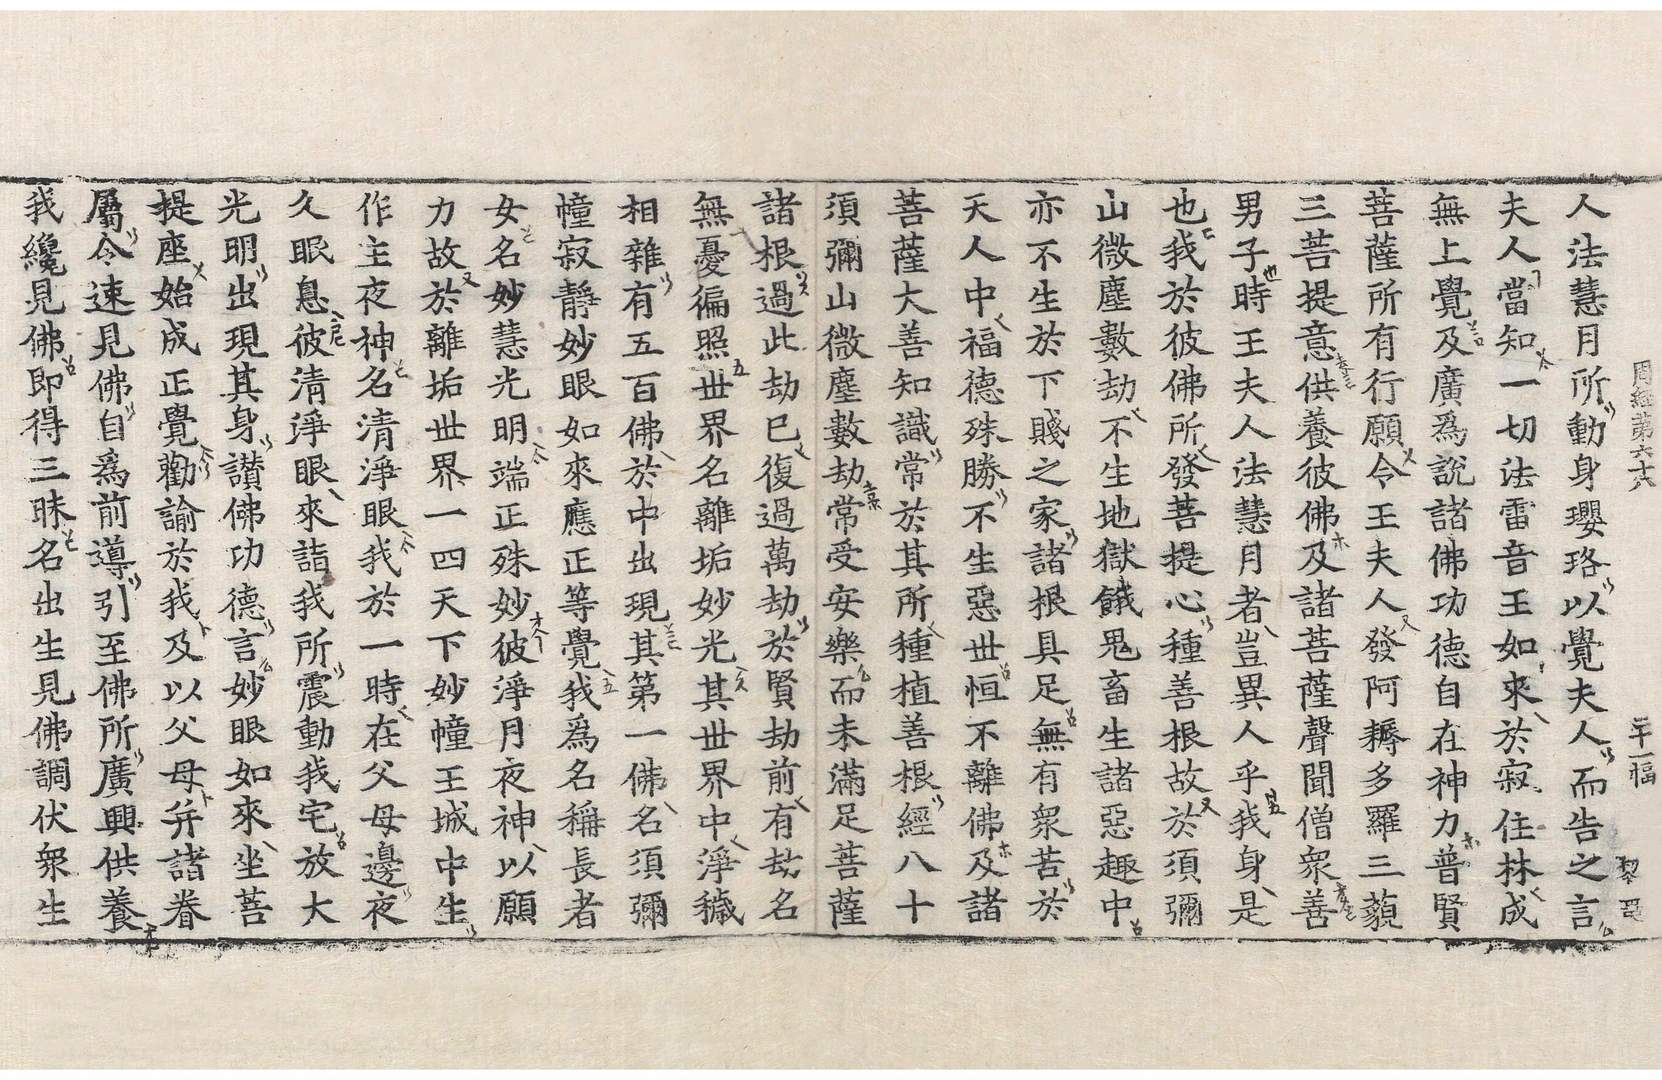 周經第六十六 二十一幅 黎
人法慧月所動身瓔珞以覺夫人而告之言
夫人當知一切法雷音王如來於寂住林成
無上覺及廣爲說諸佛功德自在神力普賢
菩薩所有行願令王夫人發阿耨多羅三藐
三菩提意供養彼佛及諸菩薩聲聞僧衆善
男子時王夫人法慧月者豈異人乎我身是
也我於彼佛所發菩提心種善根故於須彌
山微塵數劫不生地獄餓鬼畜生諸惡趣中
亦不生於下賤之家諸根具足無有衆苦於
天人中福德殊勝不生惡世恒不離佛及諸
菩薩大善知識常於其所種植善根經八十
須彌山微塵數劫常受安樂而未滿足菩薩
諸根過此劫已復過萬劫於賢劫前有劫名
無憂徧照世界名離垢妙光其世界中淨穢
相雜有五百佛於中出現其第一佛名須彌
幢寂靜妙眼如來應正等覺我爲名稱長者
女名妙慧光明端正殊妙彼淨月夜神以願
力故於離垢世界一四天下妙幢王城中生
作主夜神名清淨眼我於一時在父母邊夜
久眠息彼清淨眼來詣我所震動我宅放大
光明出現其身讚佛功德言妙眼如來坐菩
提座始成正覺勸諭於我及以父母并諸眷
屬令速見佛自爲前導引至佛所廣興供養
我纔見佛即得三昧名出生見佛調伏衆生